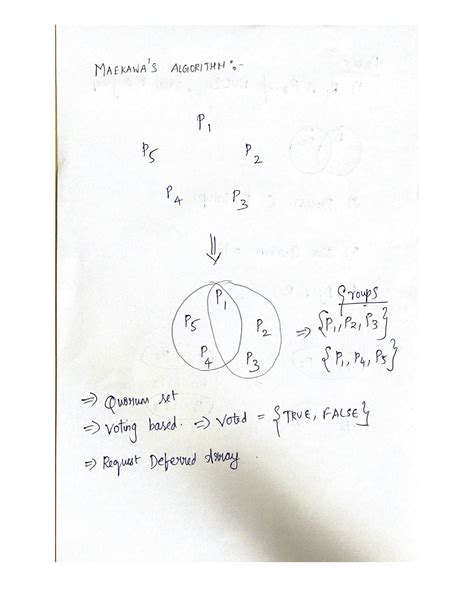 MAEKAWA'S ALGORITHM :-
P1
P5 P2
P4 P3
⇓
P1
P5 P2
P4 P3
Groups
⇒ {P1, P2, P3}
{P1, P4, P5}
⇒ Quorum set
⇒ Voting based. ⇒ Voted = {TRUE, FALSE}
⇒ Request Deferred Array.